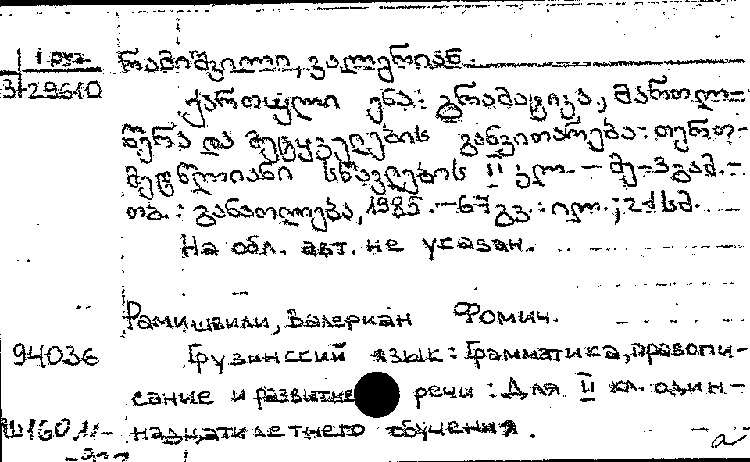 1 груз. რამიშვილი, ვალერიან.
3-29610
ქართული ენა: გრამატიკა, მართლ-
წერა და მეტყველების განვითარება: თერთ-
მეტწლიანი სწავლების II კლ. – მე-3 გამ. –
თბ.: განათლება, 1985. – 67 გვ.: ილ.; 21 სმ.
На обл. авт. не указан.
Рамишвили, Валериан Фомич.
94036 Грузинский язык: Грамматика, правопи-
сание и развитие речи: Для II кл. один-
Ш160.11- надцатилетнего обучения.